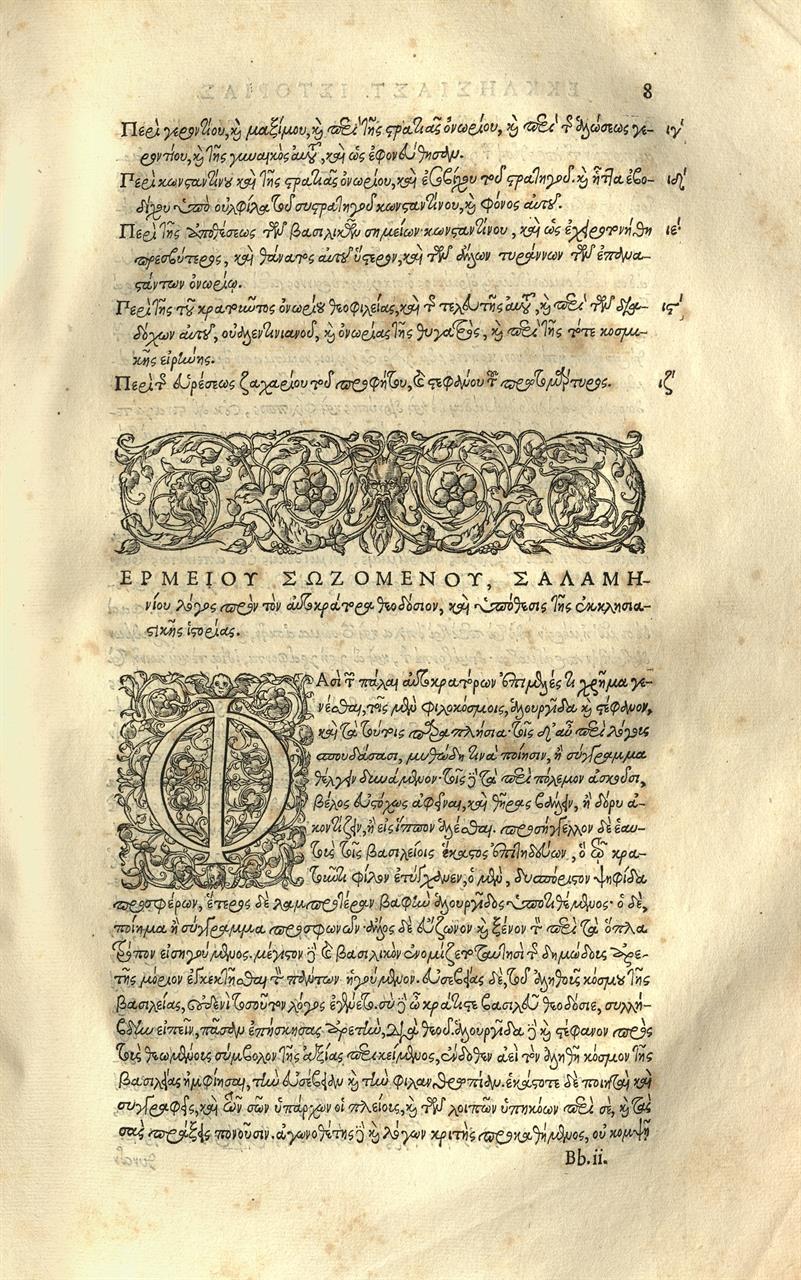 8
Περὶ γεροντίου, καὶ μαξίμου, καὶ περὶ τῆς στρατιᾶς ὀνωρίου, καὶ περὶ τῆς ἁλώσεως γε- ιγʹ
ροντίου, καὶ τῆς γυναικὸς αὐτοῦ, καὶ ὡς ἐφονεύθησαν.
Περὶ κωνσαντίνου καὶ τῆς στρατιᾶς ὀνωρίου, καὶ ἐδοβίχου τοῦ στρατηγοῦ. καὶ ἧττα ἐβο- ιδʹ
δίχου ὑπὸ οὐλφίλα τοῦ συστρατηγοῦ κωνσαντίνου, καὶ φόνος αὐτοῦ.
Περὶ τῆς ἀποθέσεως τῶν βασιλικῶν σημείων κωνσαντίνου, καὶ ὡς ἐχειροτονήθη ιεʹ
πρεσβύτερος, καὶ θάνατος αὐτοῦ ὕστερον, καὶ τῶν ἄλλων τυράννων τῶν ἐπανα-
στάντων ὀνωρίῳ.
Περὶ τῆς τοῦ κρατοῦντος ὀνωρίου θεοφιλείας, καὶ τῆς τελευτῆς αὐτοῦ, καὶ περὶ τῶν δια- ιςʹ
δόχων αὐτοῦ, οὐαλεντινιανοῦ, καὶ ὀνωρίας τῆς θυγατρὸς, καὶ περὶ τῆς τότε κοσμι-
κῆς εἰρήνης.
Περὶ τῆς εὑρέσεως ζαχαρίου τοῦ προφήτου, καὶ στεφάνου τοῦ πρωτομάρτυρος. ιζʹ
ΕΡΜΕΙΟΥ ΣΩΖΟΜΕΝΟΥ, ΣΑΛΑΜΗ-
νίου λόγος πρὸς τὸν αὐτοκράτορα θεοδόσιον, καὶ ὑπόθεσις τῆς ἐκκλησια-
στικῆς ἱστορίας.
ΦΑσὶ τῶν πάλαι αὐτοκρατόρων ἐπιμελές τι χρῆμα γε-
νέσθαι, τοῖς μὲν φιλοκόσμοις, ἁλουργίδα καὶ στέφανον,
καὶ τὰ τούτοις παραπλήσια· τοῖς δ' αὖ περὶ λόγους
σπουδάσασι, μυθώδη τινὰ ποίησιν, ἢ σύγγραμμα
θέλγειν δυνάμενον· τοῖς δὲ τὰ περὶ πόλεμον ἀσκοῦσι,
βέλος εὐστόχως ἀφεῖναι, καὶ θῆρας βαλεῖν, ἢ δόρυ ἀ-
κοντίζειν, ἢ εἰς ἵππον ἅλεσθαι. προσήγγελλον δὲ ἑαυ-
τοὺς τοῖς βασιλείοις ἕκαστος ἐπιτηδεύων, ὃ τῷ κρα-
τοῦντι φίλον ἐτύγχανεν, ὁ μὲν, δυσπόριστον ψηφίδα
προσφέρων, ἕτερος δὲ λαμπροτέραν βαφὴν ἁλουργίδος ὑποτιθέμενος· ὁ δὲ,
ποίημα ἢ σύγγραμμα προσφωνῶν· ἄλλος δὲ εὔζωνον καὶ ξένον τὸν περὶ τὰ ὅπλα
τρόπον εἰσηγούμενος. μέγιστον δὲ καὶ βασιλικὸν ἐνομίζετο ταυτησὶ τῆς δημώδους ἀρε-
τῆς μόριον ἐγκεκτῆσθαι τῶν πάντων ἡγούμενον. εὐσεβείας δὲ, τοῦ ἀληθοῦς κόσμου τῆς
βασιλείας, οὐδενὶ τοσοῦτον λόγος ἐγένετο. σὺ δὲ ὦ κράτιστε βασιλεῦ θεοδόσιε, συλλή-
βδην εἰπεῖν, πᾶσαν ἐπήσκησας ἀρετὴν, διὰ θεοῦ. ἁλουργίδα δὲ καὶ στέφανον πρὸς
τοὺς θεωμένους σύμβολον τῆς ἀξίας περικείμενος, ἔνδοθεν ἀεὶ τὸν ἀληθῆ κόσμον τῆς
βασιλείας ἠμφίεσαι, τὴν εὐσέβειαν καὶ τὴν φιλανθρωπίαν. ἑκάστοτε δὲ ποιηταὶ καὶ
συγγραφεῖς, καὶ τῶν σῶν ὑπάρχων οἱ πλείους, καὶ τῶν λοιπῶν ὑπηκόων περὶ σὲ, καὶ τὰς
σὰς πράξεις πονοῦσιν. ἀγωνοθέτης δὲ καὶ λόγων κριτὴς προκαθήμενος, οὐ κομψῇ
Bb.ii.